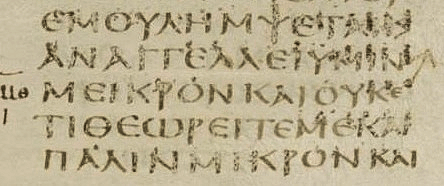 ΕΜΟΥΛΗΜΨΕΤΑΙΚΑΙ
ΑΝΑΓΓΕΛΛΕΙΥΜΙΝ
ΜΘ ΜΕΙΚΡΟΝΚΑΙΟΥΚΕ
Ι ΤΙΘΕΩΡΕΙΤΕΜΕΚΑΙ
ΠΑΛΙΝΜΙΚΡΟΝΚΑΙ